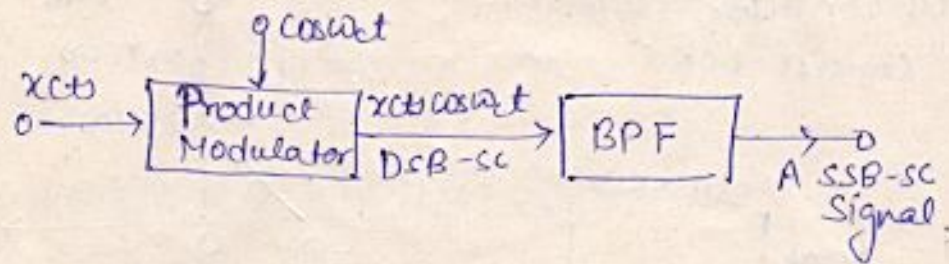 cosωct
x(t)
Product
Modulator
x(t)cosωct
DSB-SC
BPF
A SSB-SC
Signal.